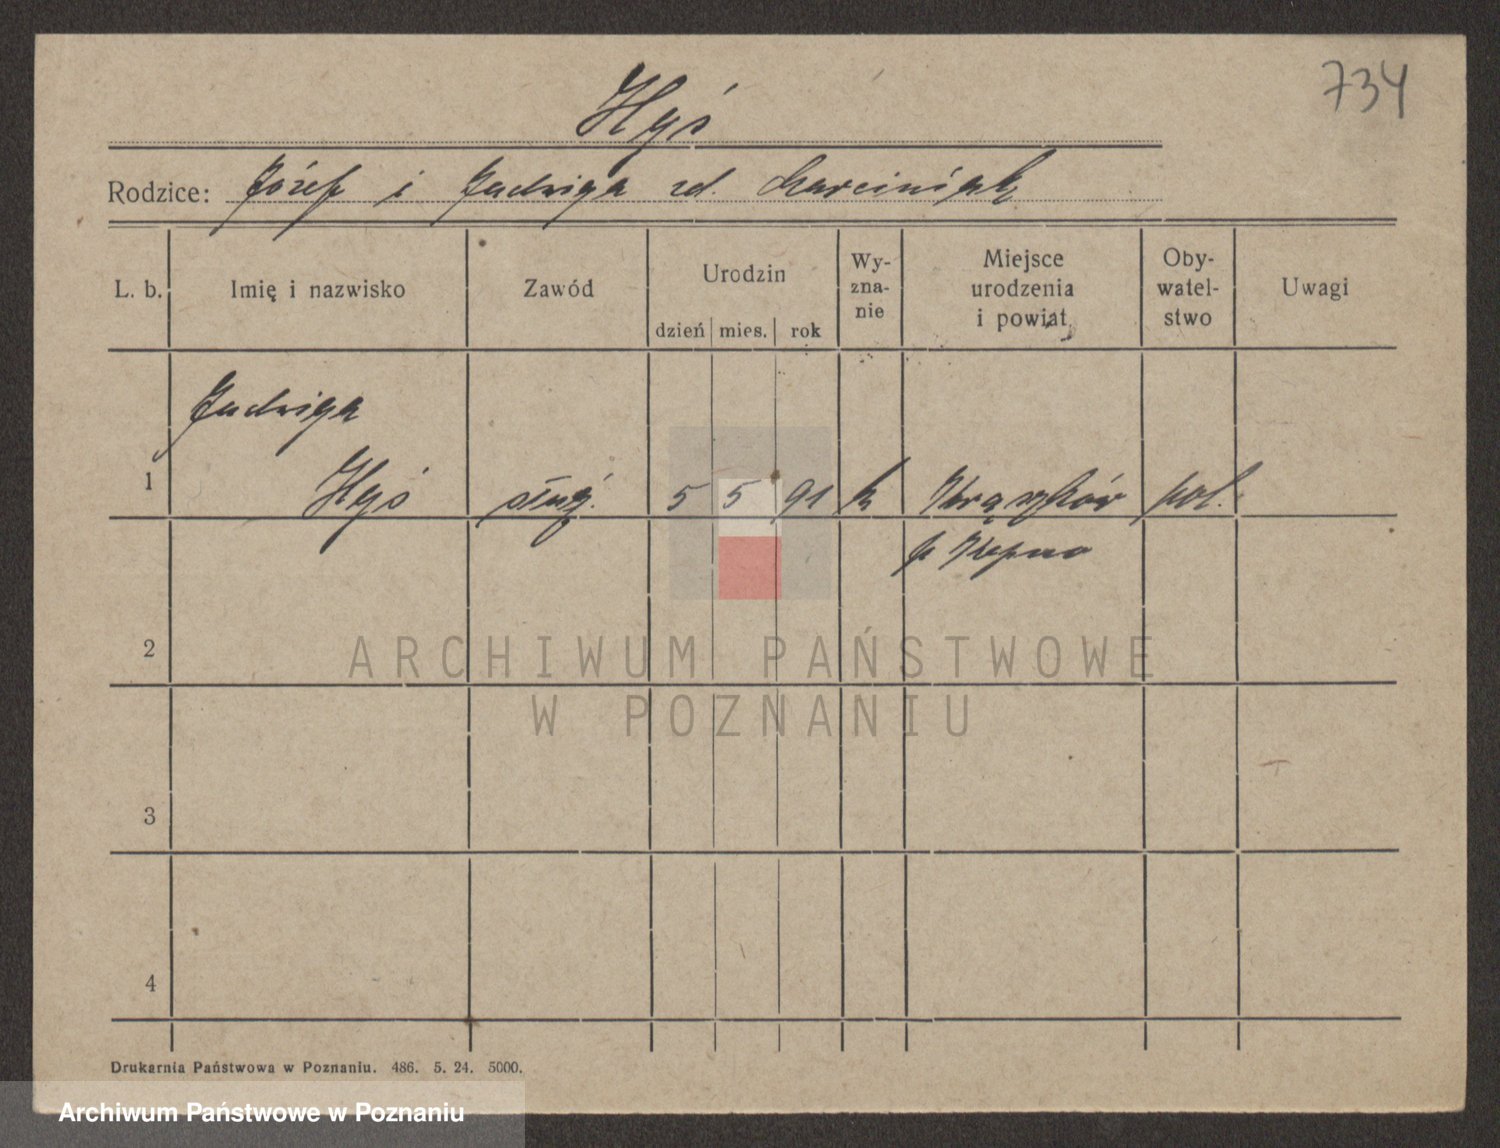 734
Hyś
Rodzice: Józef i Jadwiga zd. Marciniak
L. b. Imię i nazwisko Zawód Urodzin dzień mies. rok Wy-zna-nie Miejsce urodzenia i powiat Oby-watel-stwo Uwagi
Jadwiga
1 Hyś służ. 5 5 91 k Krążków pol.
p Kępno
2
ARCHIWUM PAŃSTWOWE
W POZNANIU
3
4
Drukarnia Państwowa w Poznaniu. 486. 5. 24. 5000.
Archiwum Państwowe w Poznaniu